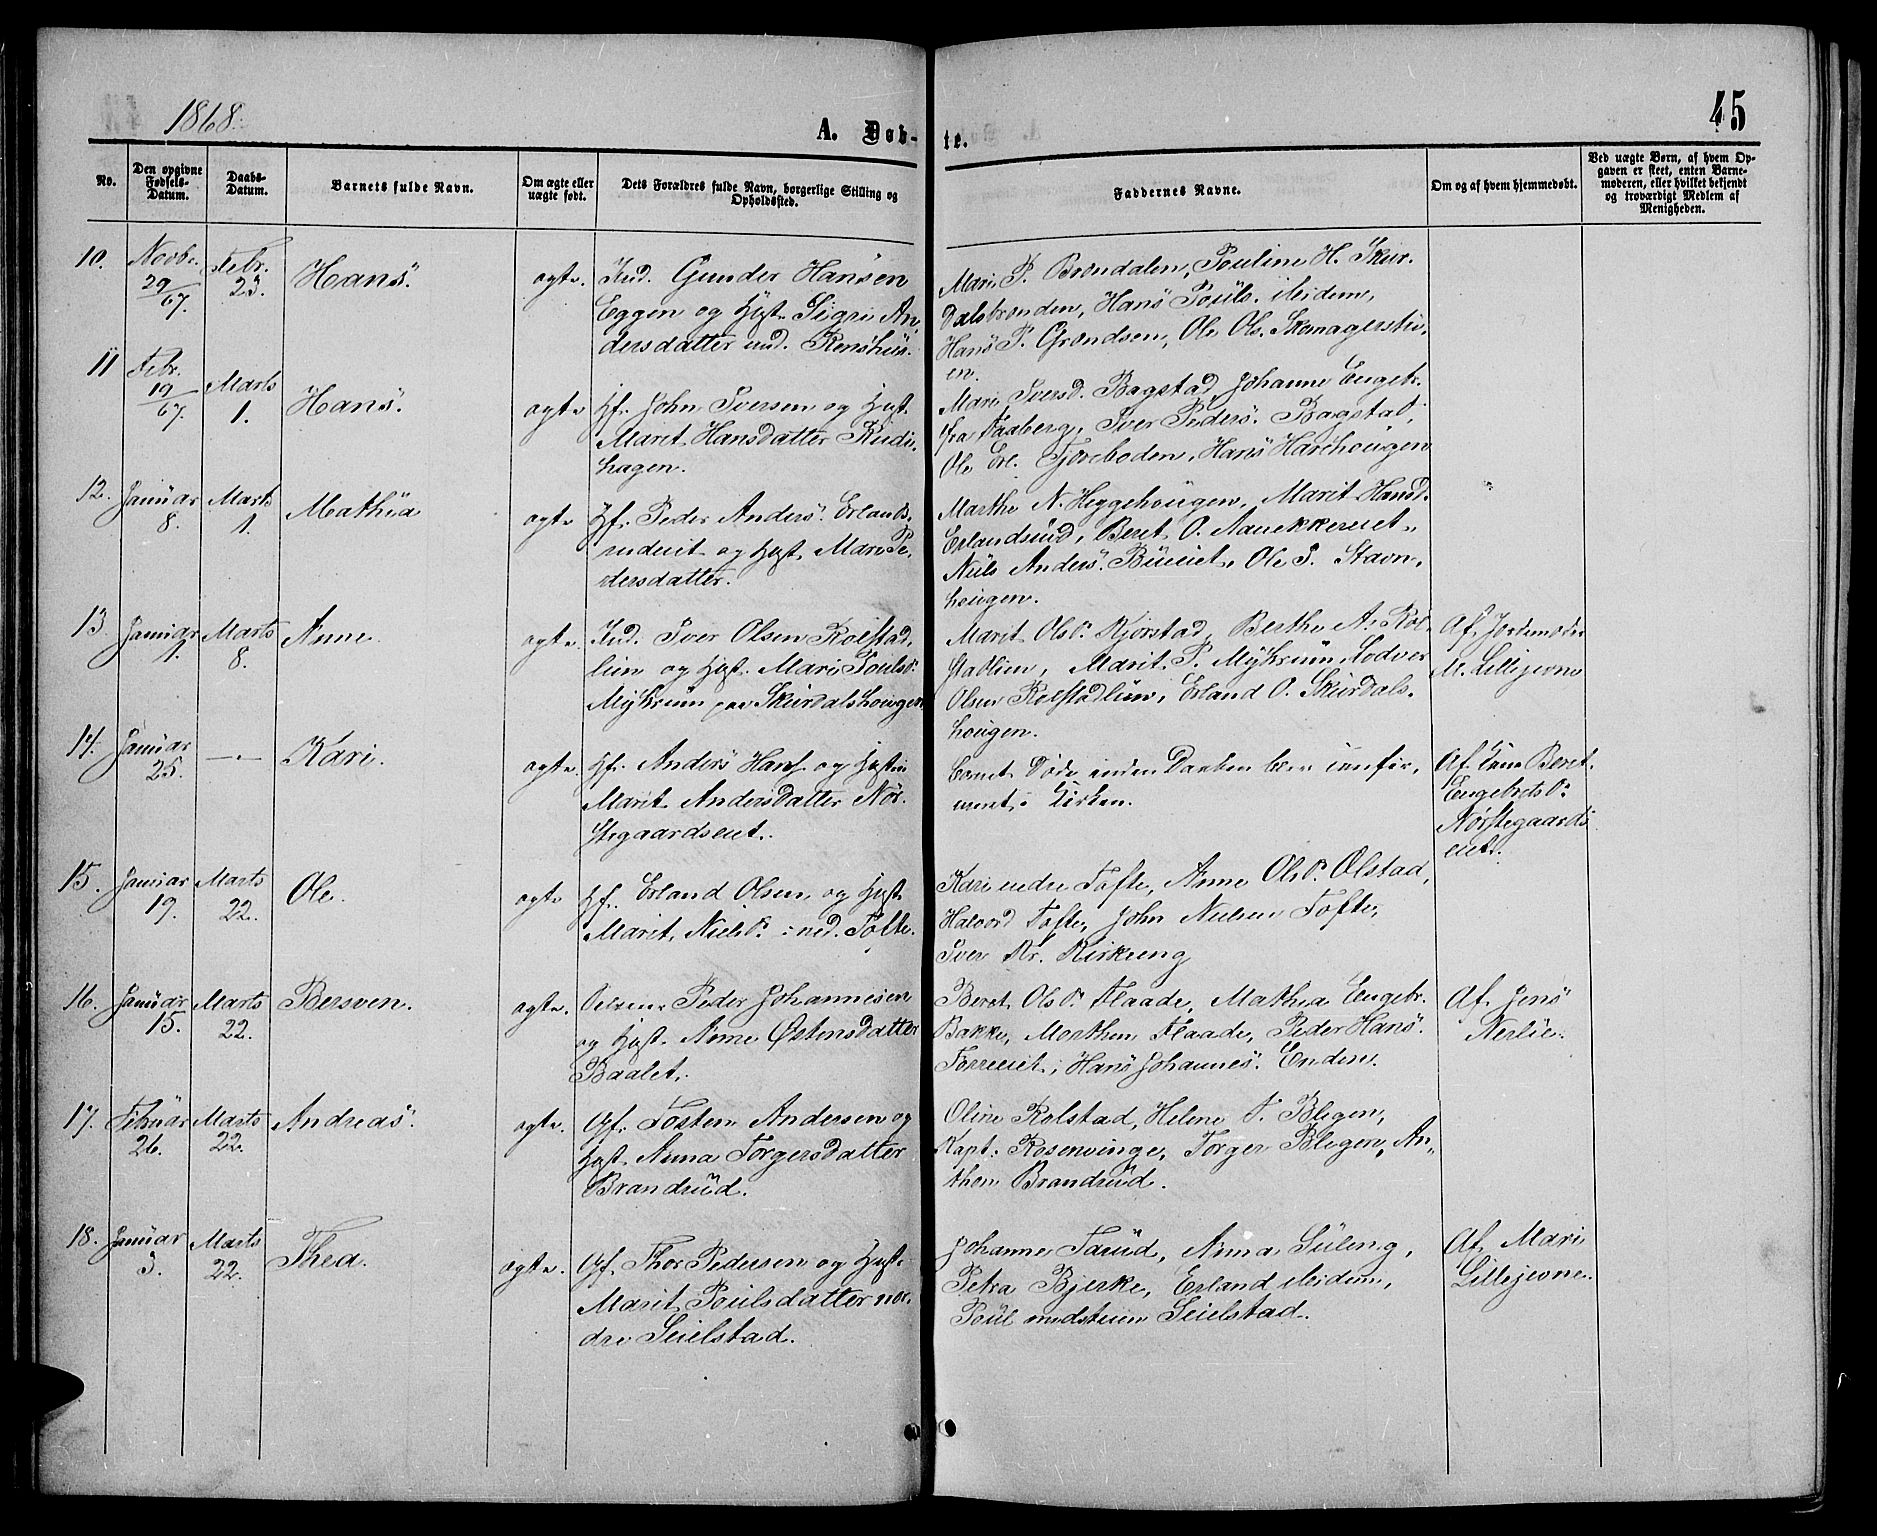 1868.
45
A. Døb-
te.
No.
Den opgivne
Fødsels-
Datum.
Daabs-
Datum.
Barnets fulde Navn.
Om ægte eller
uægte født.
Dets Forældres fulde Navn, borgerlige Stilling og
Opholdssted.
Faddernes Navne.
Om og af hvem hjemmedøbt.
Ved uægte Børn, af hvem Op-
gaven er skeet, enten Barne-
moderen, eller hvilket bekjendt
og troværdigt Medlem af
Menigheden.
10.
Novbr.
29/67.
Febr.
23.
Hans.
ægte.
Ind. Gunder Hansen
Eggen og Hust. Sigri An-
dersdatter ind.
Mari P. Brændalen, Pouline H. Skur-
dalsbrenden, Hans Pouls. Meidem,
Hans P. Grøndsen, Ole Ols. Skonagerstu-
en.
11
Febr.
19/67.
Marts
1.
Hans.
ægte
Hf. John Iversen og Hust.
Marit Hansdatter
hagen.
Mari Iversd. Bagstad, Johanne Engebr.
fra Faaberg, Iver Peders. Bagstad,
Ole Erl. Hans Harehougen
12.
Januar
8.
Marts
1.
Mathia
ægte
Hf. Peder Anders. Erlands-
rudeiet og Hust. Mari Pe-
dersdatter.
Marthe N. Heggehougen, Marit Hansd.
Erlandsrud, Beret O.
Niels Anders. Ole S. Stavn-
hougen.
13.
Januar
1.
Marts
8.
Anne
ægte
Ind. Iver Olsen Kolstad-
lien og Hust. Mari Poulsd.
Myhrum paa Skurdalshougen
Marit Olsd. Kjorstad, Berthe A. Kol-
stadlien, Marit P. Myhrum, Lodver
Olsen Kolstadlien, Erland O. Skurdals-
hougen.
Af Jordmoder
M. Lillejevne
14.
Januar
25.
— „ —
Kari.
ægte.
Hf. Anders Hans. og Hustru
Marit Andersdatter Nør-
stegaardseiet.
Barnet døde inden Daaben blev
i Kirken.
Af Kone Beret
Engebretsd.
Nørstegaards
eiet.
15.
Januar
19.
Marts
22.
Ole.
ægte
Hf. Erland Olsen og Hust.
Marit Nielsd. ned. Tofte.
Kari nedre Tofte, Anne Olsd. Olstad,
Halvord Tofte, John Nielsen Tofte,
Iver Kr. Kirkeeng
16.
Januar
15.
Marts
22.
Bersven.
ægte.
Peder Johannesen
og Hust. Anne Østensdatter
Baalet.
Beret Olsd. Flaade, Mathea Engebr.
Bakke, Morthen Flaade, Peder Hans.
Hans Johannes. Enden.
Af Jens
Nerlie.
17.
Februar
26.
Marts
22.
Andreas.
ægte.
Gf. Tosten Andersen og
Hust. Anna Torgersdatter
Brandrud.
Oline Kolstad, Helene T. Blegen,
Kapt. Rosenvinge, Torger Blegen, An-
thon Brandrud.
18.
Januar
3.
Marts
22.
Thea.
ægte.
Gf. Thor Pedersen og Hust.
Marit Poulsdatter nor-
dre Seielstad.
Johanne Tarud, Anna Suleng,
Petra Bjerke, Erland Meidem,
Poul midstuen Seielstad.
Af Mari
Lillejevne.